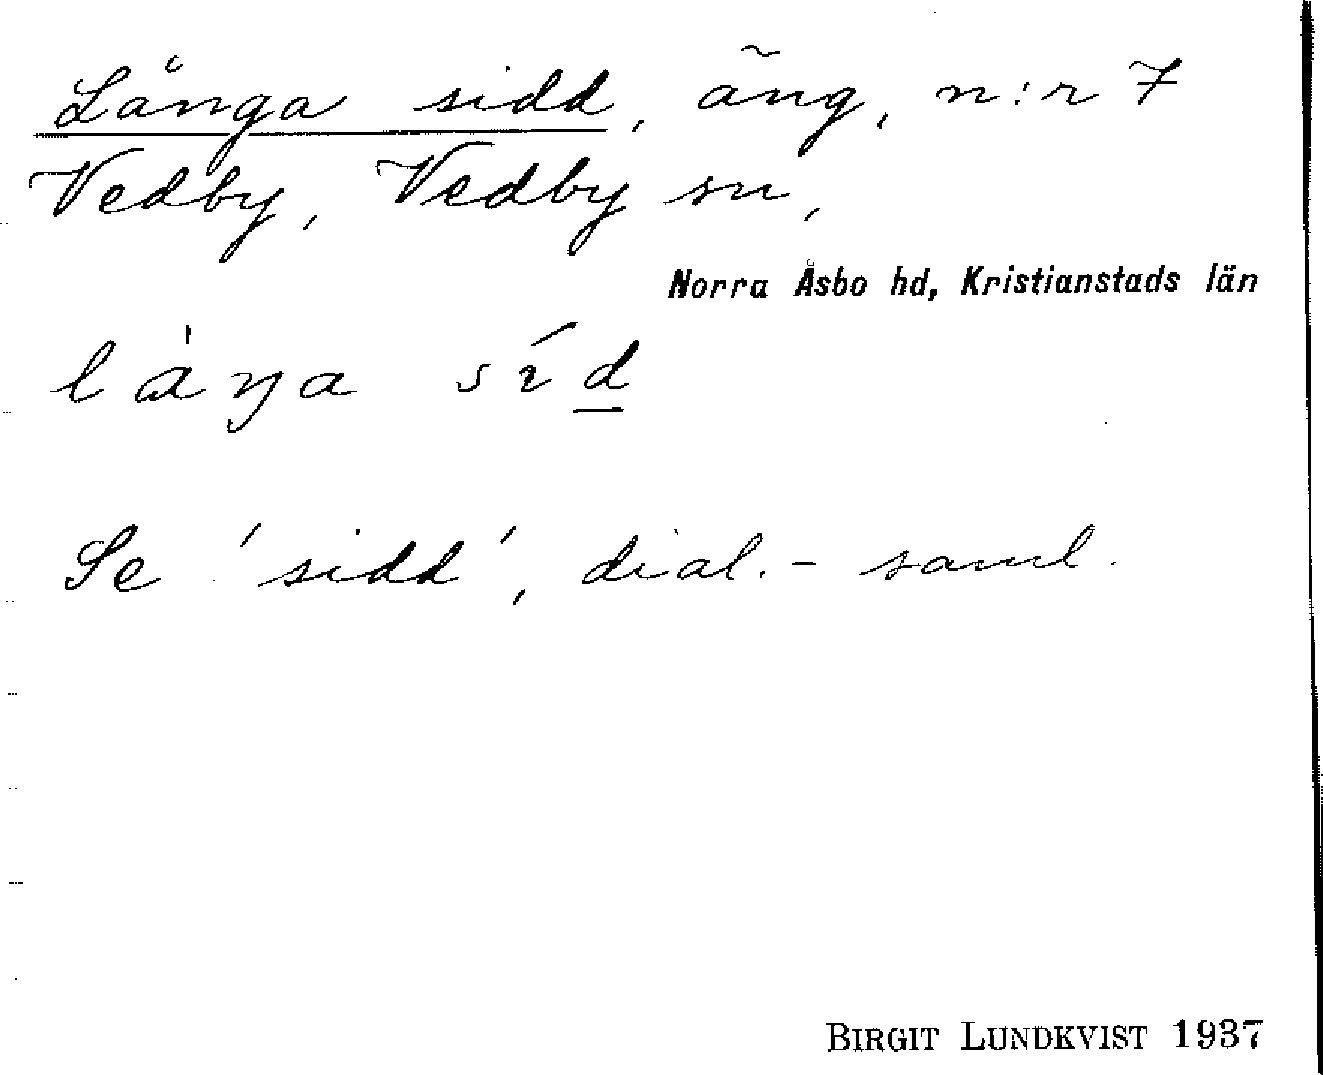 Långa sidd, äng, n:r 7
Vedby, Vedby sn,
Norra Åsbo hd, Kristianstads län
låŋa síd
Se 'sidd', dial.-saml.
BIRGIT LUNDKVIST 1937